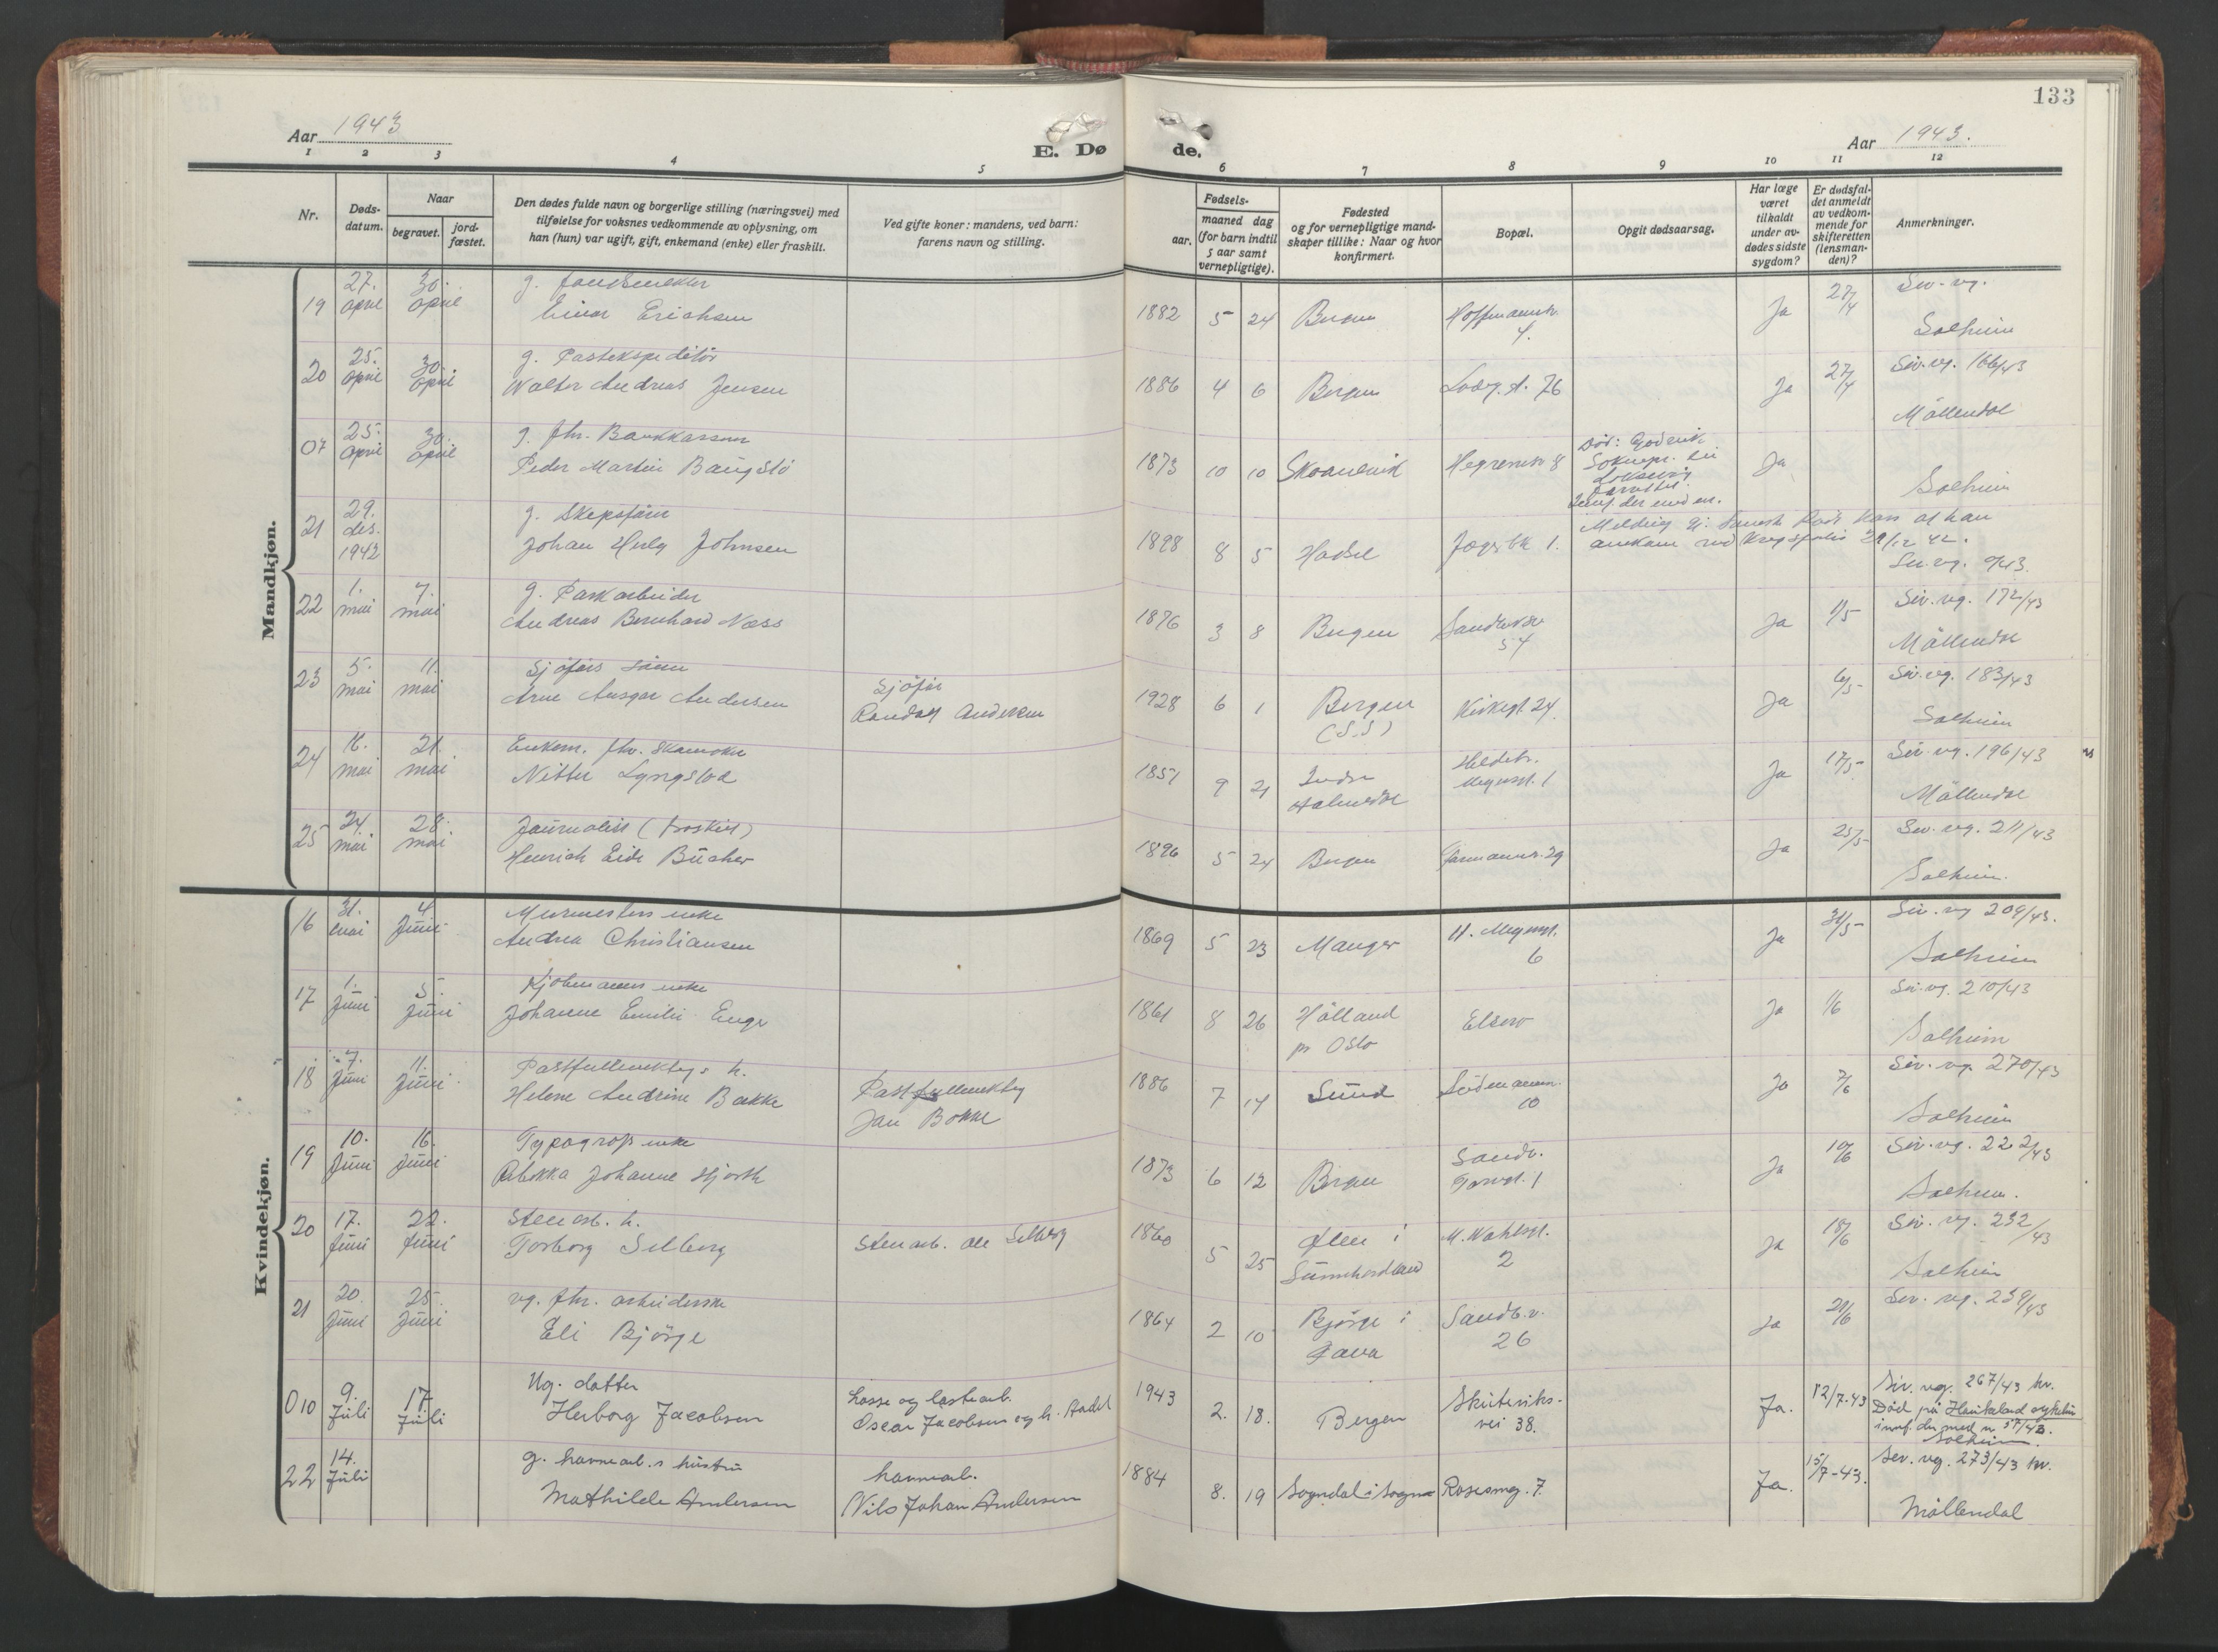 133
Aar 1943
E. Dø
de.
Aar 1943.
1 2 3 4 5 6 7 8 9 10 11 12
Nr.
Døds-
datum.
Naar
begravet.
jord-
fæstet.
Den dødes fulde navn og borgerlige stilling (næringsvei) med
tilføielse for voksnes vedkommende av oplysning, om
han (hun) var ugift, gift, enkemand (enke) eller fraskilt.
Ved gifte koner: mandens, ved barn:
farens navn og stilling.
Fødsels-
aar.
maaned dag
(for barn indtil
5 aar samt
vernepligtige).
Fødested
og for vernepligtige mand-
skaper tillike: Naar og hvor
konfirmert.
Bopæl.
Opgit dødsaarsag.
Har læge
været
tilkaldt
under av-
dødes sidste
sygdom?
Er dødsfal-
det anmeldt
av vedkom-
mende for
skifteretten
(lensman-
den)?
Anmerkninger.
Mandkjøn.
19 27. april 30. april g.
Einar Erichsen 1882 5 24 Bergen 4. Ja 27/4 Solheim
20 25. april 30. april g. Postekspeditör
Walter Andreas Jensen 1886 4 6 Bergen 76 Ja 27/4 Siv. vg. 166/43
Möllendal
07 25. april 30. april g. fhv.
Peder Martin Baugstö 1873 10 10 Skaanevik 8 Ja Solheim
21 29. des. 1942 g. Skipsförer
Johan Johnsen 1898 8 5 Hadsel 1.
22 1. mai 7. mai g. Parkarbeider
Andreas Bernhard Næss 1876 3 8 Bergen 54 Ja 1/5 Siv. vg. 172/43
Möllendal
23 5. mai 11. mai Sjåförs sönn
Arne Ansgar Andersen Sjåför
Randolf Andersen 1928 6 1 Bergen Kirkegt. 24. Ja 6/5 Siv. vg. 183/43
Solheim
24 16. mai 21. mai Enkem. fhv. skomaker
Nitter Lyngstad 1851 9 21 Indre
Ja 17/5 Siv. vg. 196/43
Möllendal
25 24. mai 28. mai Journalist (fraskilt)
Henrich Eide Bücher 1896 5 24 Bergen 29 Ja 25/5 Siv. vg. 211/43
Solheim.
Kvindekjøn.
16 31. mai 4. Juni Murmesters enke
Andrea Christiansen 1869 5 23 Manger 6 Ja 31/5 Siv. vg 209/43.
Solheim
17 1. Juni 5. Juni Kjöbmanns enke
Johanne Emilie Enge 1861 8 26 Hölland
pr Oslo Elsero Ja 1/6 Siv. vg. 210/43
Solheim
18 7. Juni 11. Juni Postfullmektigs h.
Helene Andrine Bakke Postfullmektig
Jan Bakke 1886 7 14 Sund 10 Ja 7/6 Siv. vg. 270/43
Solheim
19 10. Juni 16. Juni Typografs enke
Rebekka Johanne Hjorth 1873 6 12 Bergen Sandv.
Torvet. 1 Ja 10/6 Siv. vg. 222/43
Solheim.
20 17. Juni 22. Juni Stenarb. h.
Torborg Selberg Stenarb. Ole Selberg 1860 5 25 Ølen i
Sunnhordland 2 Ja 18/6 Siv. vg. 232/43
Solheim
21 20. Juni 25. Juni ug. fhv. arbeiderske
Eli Björge 1864 2 10 Björge i
Sandv. v.
26 Ja 21/6 Siv. vg. 239/43
010 9. Juli 17. Juli Ug. datter
Herborg Jacobsen Losse og lastearb.
Oscar Jacobsen og h. 1943 2. 18. Bergen Skuteviks-
vei 38. Ja. 12/7-43 Siv. vg. 267/43 hr.
Död på Haukeland sykehus
Solheim.
22 14. Juli g. havnearb.s hustru
Mathilde Andersen havnearb.
Nils Johan Andersen 1884 8. 19 Sogndal i Sogn Rosesmg. 7. Ja. 15/7-43. Siv. vg. 273/43 hr.
Möllendal